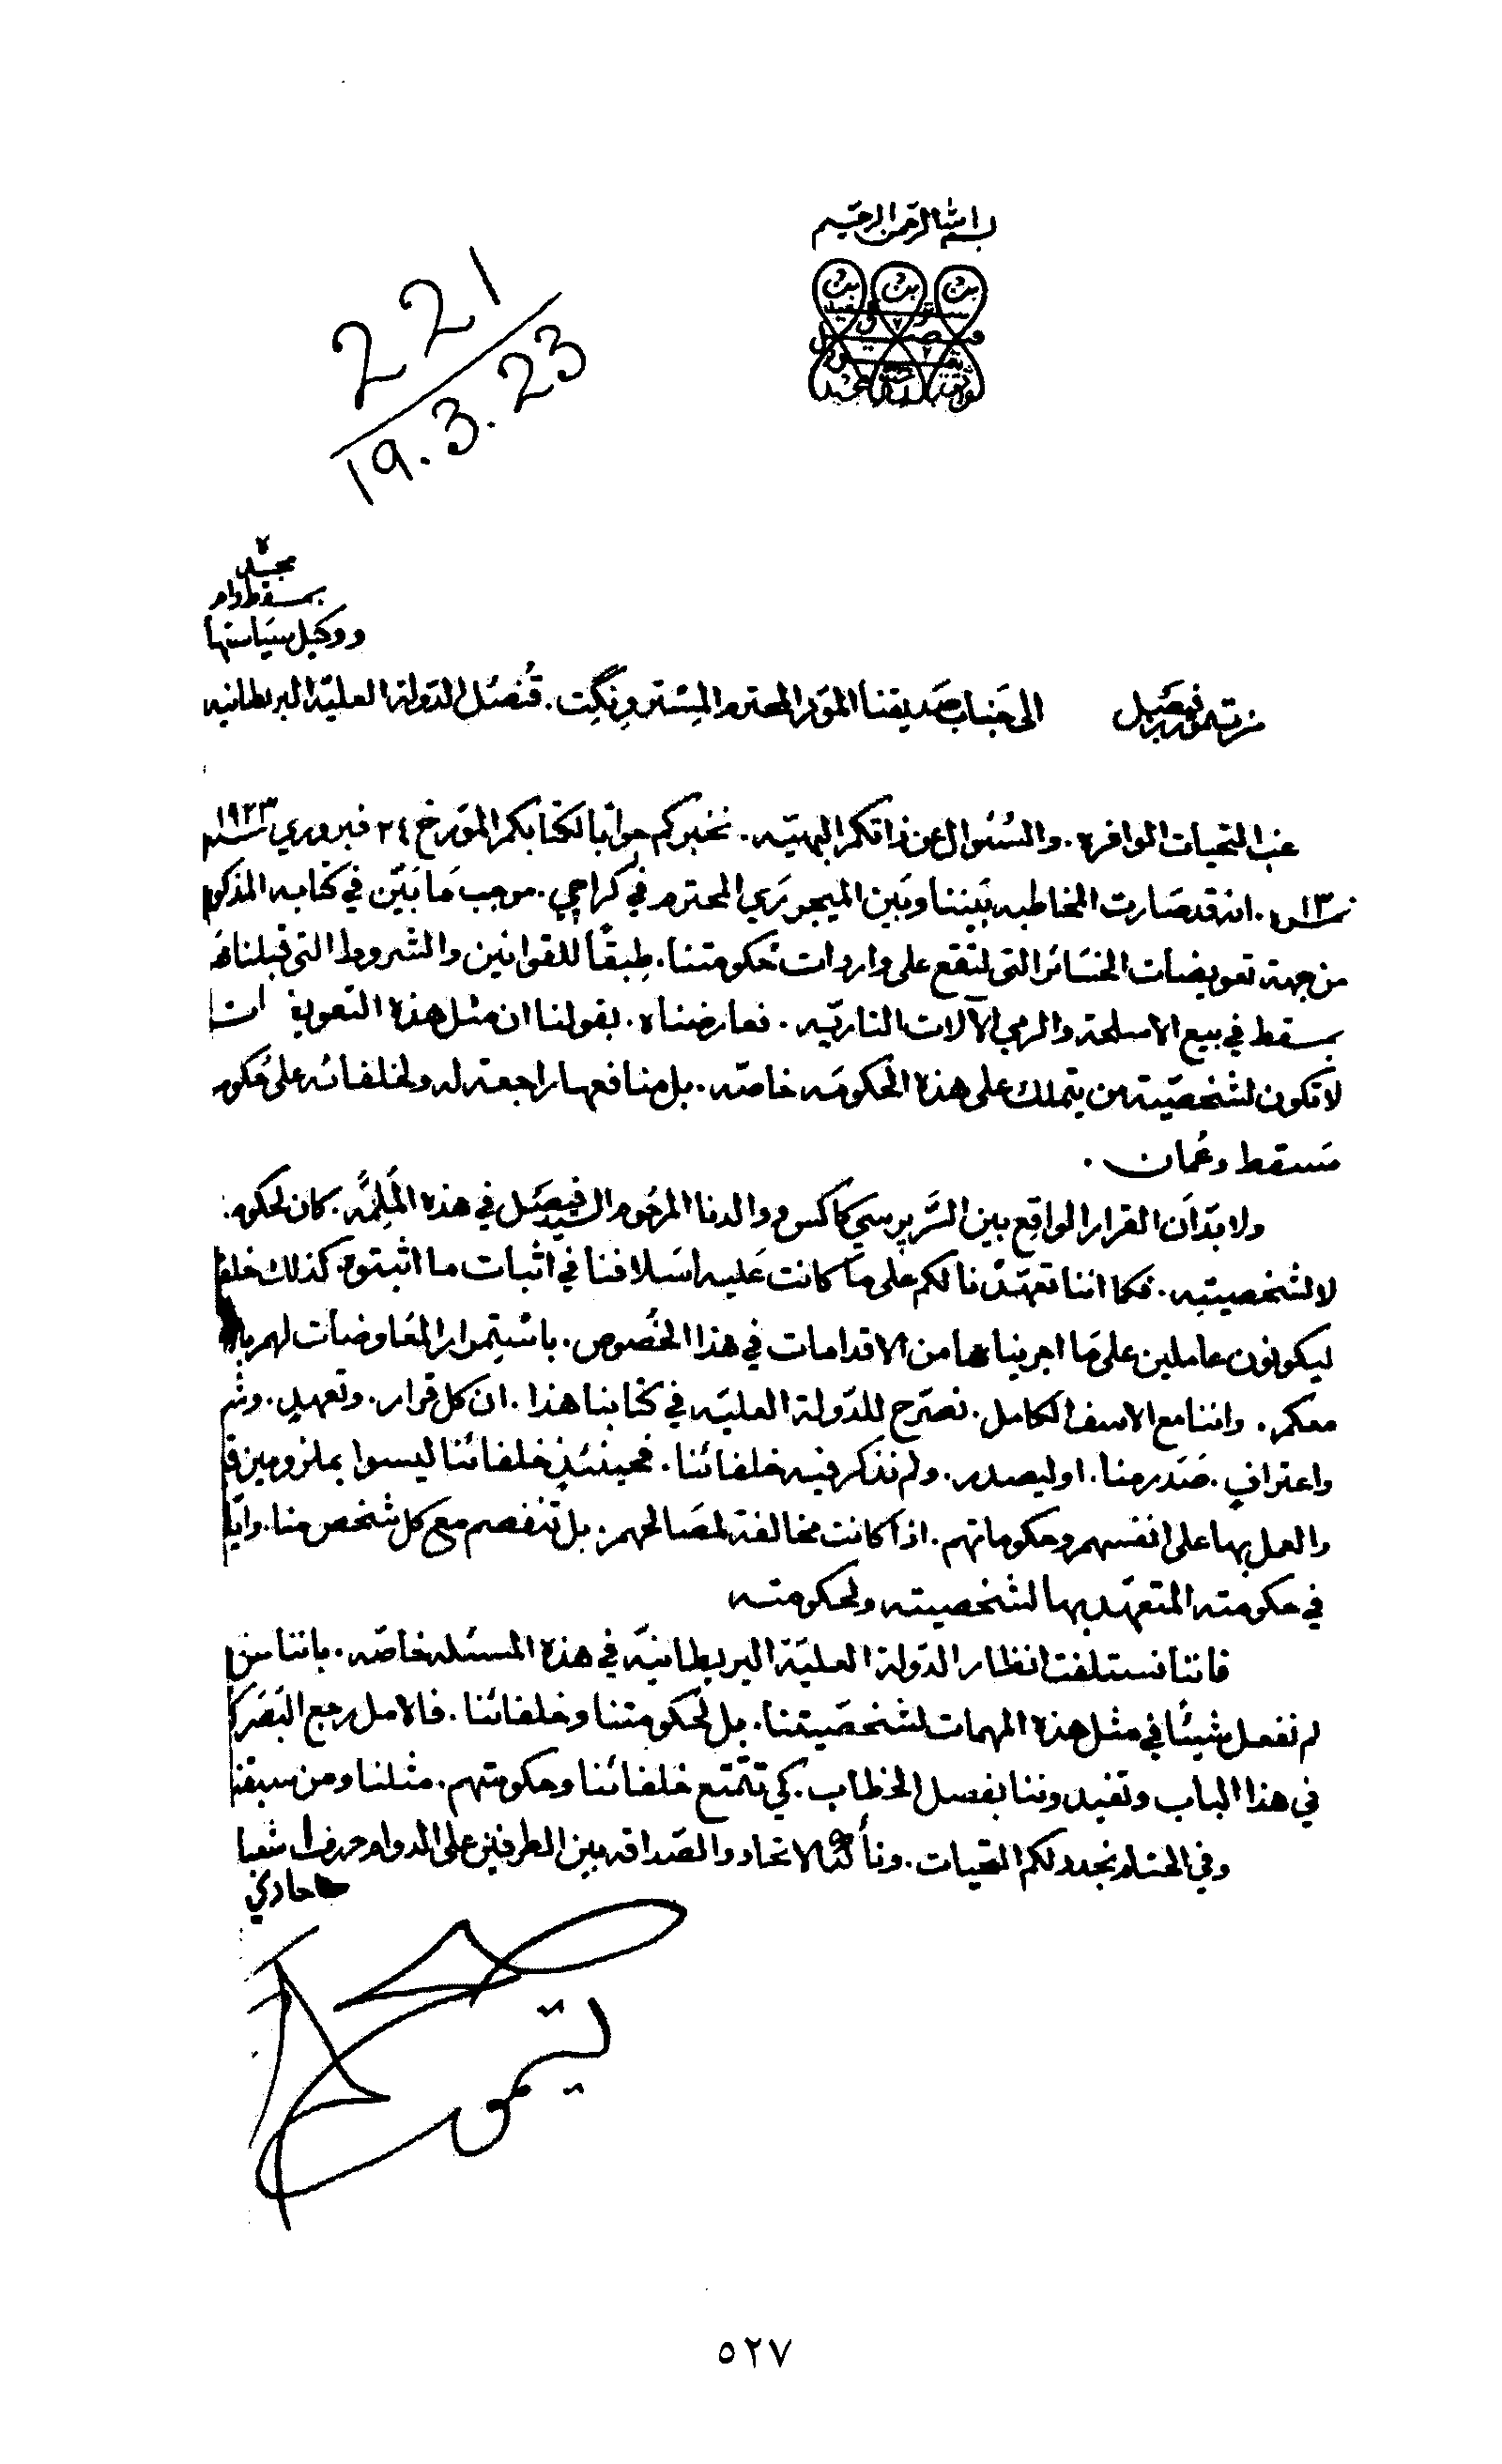 بسم الله الرحمن الرحيم
221
19.3.23
من تيمور بن فيصل الى جناب صديقنا الموقر المحترم المستر ونگيت. قُنصُل الدولة العلية البريطانيه
ووكيل سياستها
بمسقط دام
مجده
غب التحيات الوافره. والسُئوال عن ذاتكم البهيّه. نخبركم جوابا لكتابكم المؤرخ ٢٤ فبروري سنه ١٩٢٣
نمره ١٣. انه قد صارت المخاطبه بَيننا وبَين الميجر رَي المحترم في كراچي. موجب مَا بَيّن في كتابه المذكور
من جهة تعويضات الخسَائر التى لتقع على واردات حكومتنا. طِبقًا للقوانين والشروط التى قبلناها
بمسقط في بيع الاسلحة والرمي الآلات الناريّه. فعارضناه. بقولنا ان مثل هذه التعويضات
لا تكون لشخصيّة من يتملك على هذه الحكومَه خاصّه. بل منافعها راجعة له ولخلفائه على حكومة
مَسقط وعُمان.
ولا بدّ أن القرار الواقع بين السَّر پرسي كاكس ووالدنا المرحُوم السيد فيصَل في هذه المُلِمَّه. كان لحكومته
لا لشخصيته. فكما اننا تعهّدنا لكم على مَا كانت عَليه اسَلافنا في اثبات ما اثبتوه. كذلك
ليكونون عاملين على مَا اجريناها من الاقدامات في هذا الخُصوص. باستِمرار المفاوضات لهم
معكم. واننا مع الاسف الكامل. نصَرّح للدّولة العليّه في كتابنا هذا. ان كل قرار. وتعهدٍ.
واعترافٍ. صَدَر منا. او ليصدر. ولم نذكر فيه خلفائنا. فحينئذٍ خلفائنا ليسوا بملزومين
والعمل بها على انفسهم وحكوماتهم. اذا كانت مخالفة لمصَالحهم. بل تنفصم مع كل شخص منا.
في حكومته المتعهّد بها لشخصيته ولحكومته
فاننا نستلفت انظار الدّولة العليّة البريطانيّه في هذه المسئله خاصّه. باننا
لم نفعل شيئًا في مثل هذه المهمات لشخصَيتنا. بل لحكومتنا وخلفائنا. فالامل رجع البَصَر
في هذا الباب وتفيدوننا بفصل الخطاب. كي تتمتع خلفائنا وحكومتهم. مثلنا ومن سبقنا
وفي الختام نجدد لكم التحيات. ونأكد الاتحاد والصّداقه بين الطرفين على الدوام
تيمور
٥٢٧